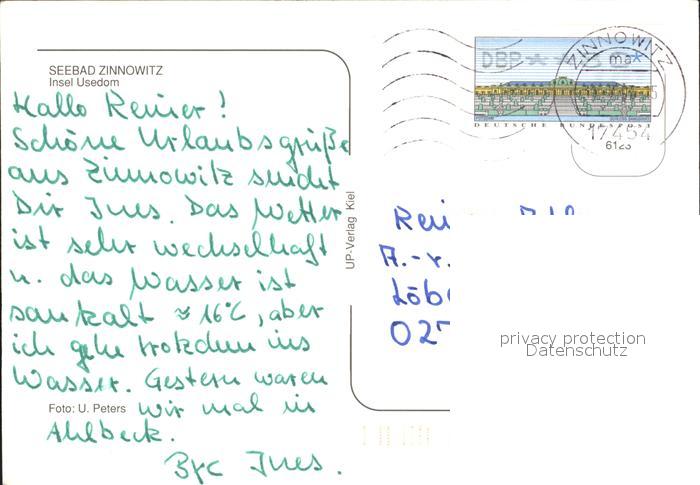 SEEBAD ZINNOWITZ
Insel Usedom
Hallo Reiner!
Schöne Urlaubsgrüße
aus Zinnowitz sendet
Dir Ines. Das Wetter
ist sehr wechselhaft
u. das Wasser ist
saukalt ≈ 16°C, aber
ich gehe trotzdem ins
Wasser. Gestern waren
Foto: U. Peters wir mal in
Ahlbeck.
Ines.
UP-Verlag Kiel
DBP
DEUTSCHE BUNDESPOST
ZINNOWITZ
ma
17454
Rei
A.-v.
Löb
02
privacy protection
Datenschutz